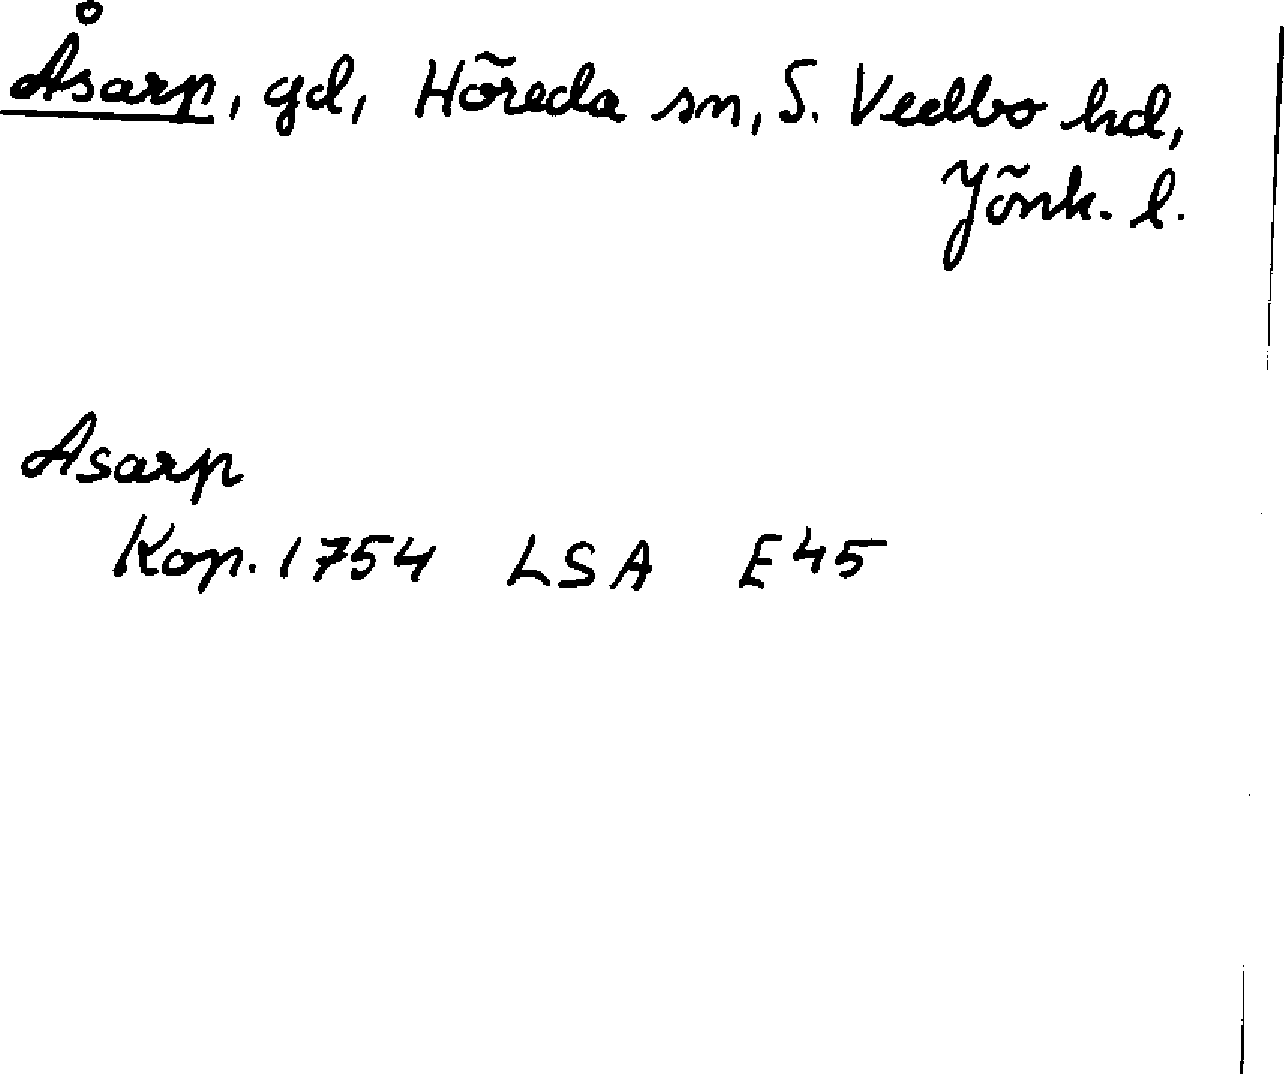 Åsarp, gd, Höreda sn, S. Vedbo hd,
Jönk. l.
Asarp
Kop. 1754 LSA E45